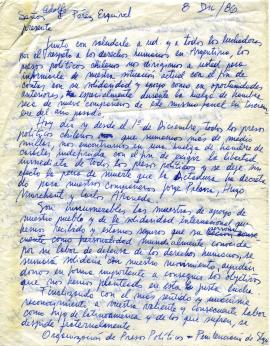 Señor Adolfo Pérez Esquivel 8 Dic/86
presente
Junto con saludarle a ud. y a todos los luchadores
por el respeto a los derechos humanos en Argentina, los
presos políticos chilenos nos dirigimos a usted para
informarle de nuestra situación actual con el fin de
contar en su solidaridad y apoyo como en oportunidades
anteriores, especialmente durante la huelga de hambre
seca de nueve compañeros de este mismo penal en
del año pasado.
Hoy día y desde el 1º de Diciembre, todos los presos
políticos chilenos que sumamos más de medio
millar, nos encontramos en una huelga de hambre de
carácter indefinida con el fin de exigir la libertad
inmediata de todos los presos políticos y se deje sin
efecto la pena de muerte que la dictadura ha decreta-
do para nuestros compañeros Jorge Palma, Hugo
Marchant y Carlos Araneda
Innumerables las muestras de apoyo de
nuestro pueblo y de la solidaridad internacional que
hemos recibido y estamos seguros que su
como personalidad mundialmente conocida
por su labor de defensa de los derechos humanos, se
solidaria con nuestro movimiento, ayudán-
donos en forma importante a conseguir los objetivos
que nos hemos planteado en esta justa lucha
Finalizando con el más sentido y
reconocimiento a vuestra valiente y consecuente labor
como hijo de Latinoamérica y de los que sufren, se
despide fraternalmente
Organización de Presos Políticos - Penitenciaría de Stgo